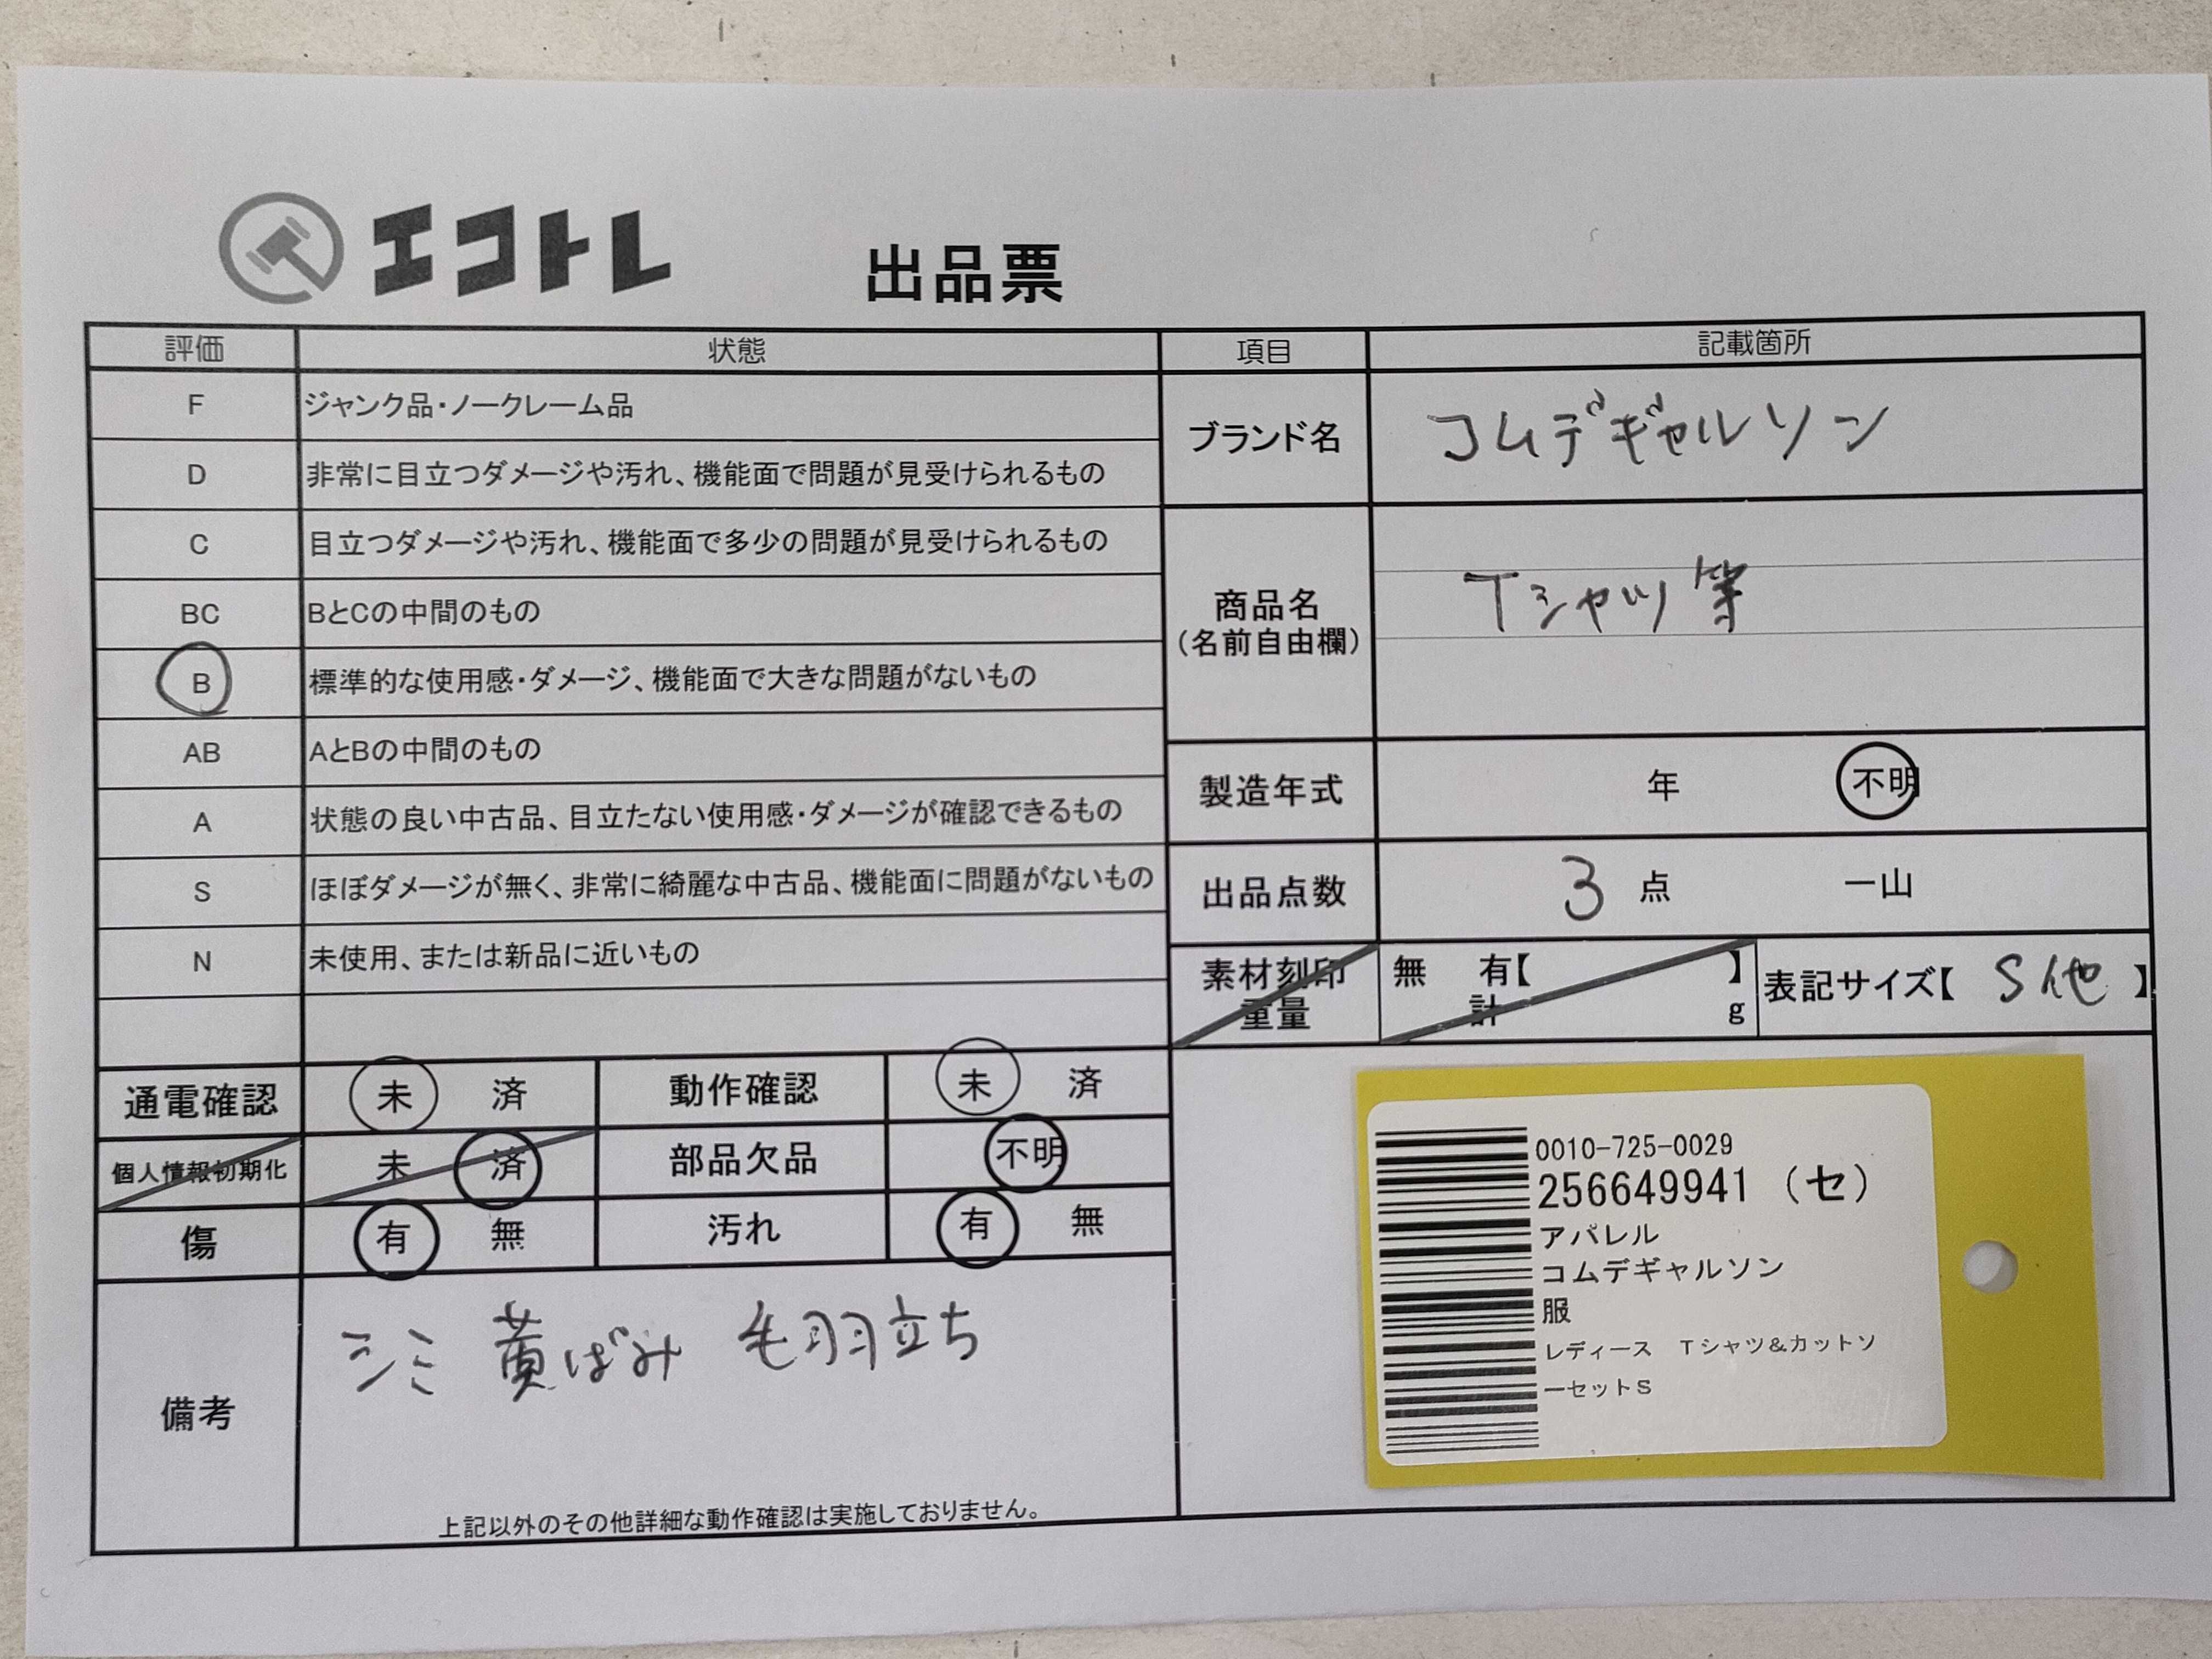 エコトレ
出品票
評価 状態 項目 記載箇所
F ジャンク品・ノークレーム品
D 非常に目立つダメージや汚れ、機能面で問題が見受けられるもの
C 目立つダメージや汚れ、機能面で多少の問題が見受けられるもの
BC BとCの中間のもの
B 標準的な使用感・ダメージ、機能面で大きな問題がないもの
AB AとBの中間のもの
A 状態の良い中古品、目立たない使用感・ダメージが確認できるもの
S ほぼダメージが無く、非常に綺麗な中古品、機能面に問題がないもの
N 未使用、または新品に近いもの
ブランド名 コムデギャルソン
商品名 Tシャツ等
(名前自由欄)
製造年式 年 不明
出品点数 3 点 一山
素材刻印 無 有【 】
重量 計 g
表記サイズ【 S他 】
通電確認 未 済 動作確認 未 済
個人情報初期化 未 済 部品欠品 不明
傷 有 無 汚れ 有 無
備考 シミ 黄ばみ 毛羽立ち
上記以外のその他詳細な動作確認は実施しておりません。
0010-725-0029
256649941 (セ)
アパレル
コムデギャルソン
服
レディース Tシャツ&カットソ
ーセットS